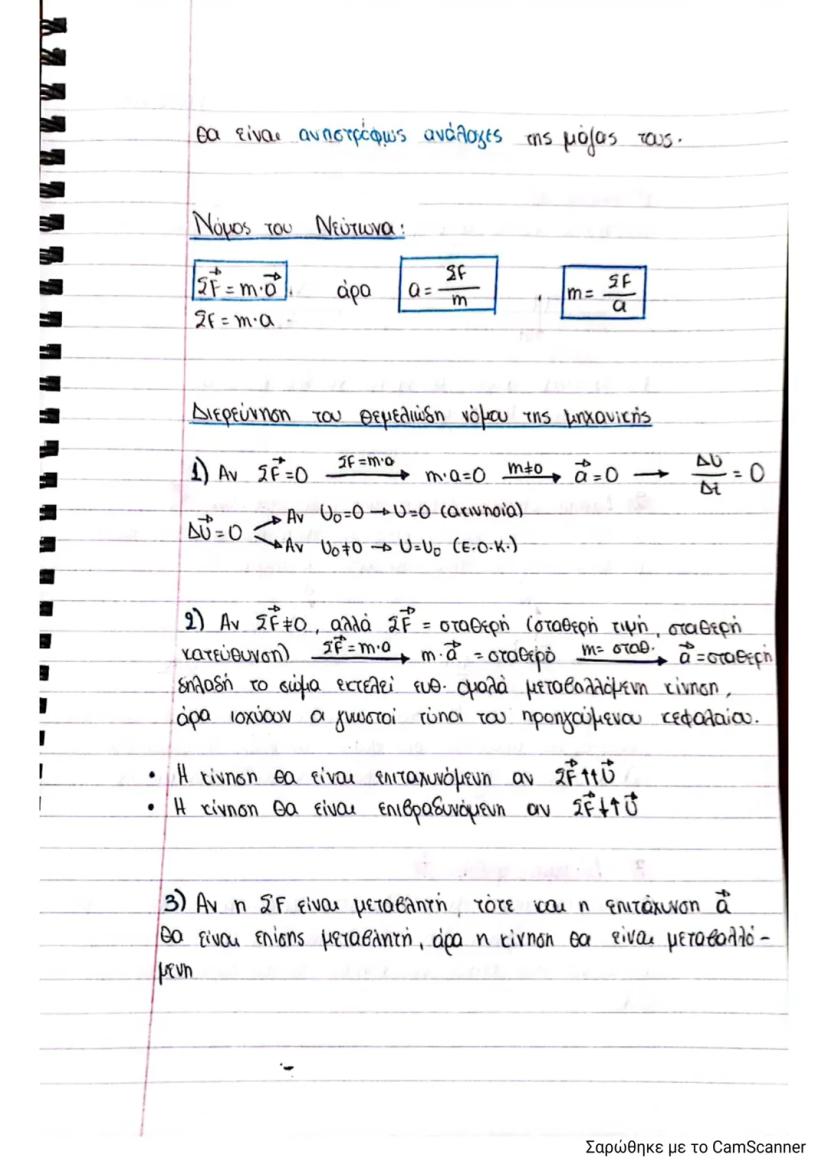 θα είναι αντιστρόφως ανάλογες της μάζας τους.
Νόμος του Νεύτωνα:
ΣF⃗ = m·α⃗ . άρα α = ΣF/m , m = ΣF/α
ΣF = m·α .
Διερεύνηση του θεμελιώδη νόμου της μηχανικής
1) Αν ΣF⃗ = 0 —ΣF=m·α→ m·α=0 —m≠0→ α⃗ = 0 → ΔU/Δt = 0
Αν U₀=0 → U=0 (ακινησία)
ΔU⃗ = 0
Αν U₀≠0 → U=U₀ (Ε.Ο.Κ.)
2) Αν ΣF⃗ ≠ 0, αλλά ΣF⃗ = σταθερή (σταθερή τιμή, σταθερή
κατεύθυνση) —ΣF⃗=m·α→ m·α⃗ = σταθερό —m= σταθ.→ α⃗ = σταθερή
δηλαδή το σώμα εκτελεί ευθ. ομαλά μεταβαλλόμενη κίνηση,
άρα ισχύουν οι γνωστοί τύποι του προηγούμενου κεφαλαίου.
• Η κίνηση θα είναι επιταχυνόμενη αν ΣF⃗ ↑↑ U⃗
• Η κίνηση θα είναι επιβραδυνόμενη αν ΣF⃗ ↓↑ U⃗
3) Αν η ΣF είναι μεταβλητή, τότε και η επιτάχυνση α⃗
θα είναι επίσης μεταβλητή, άρα η κίνηση θα είναι μεταβαλλό-
μενη
Σαρώθηκε με το CamScanner